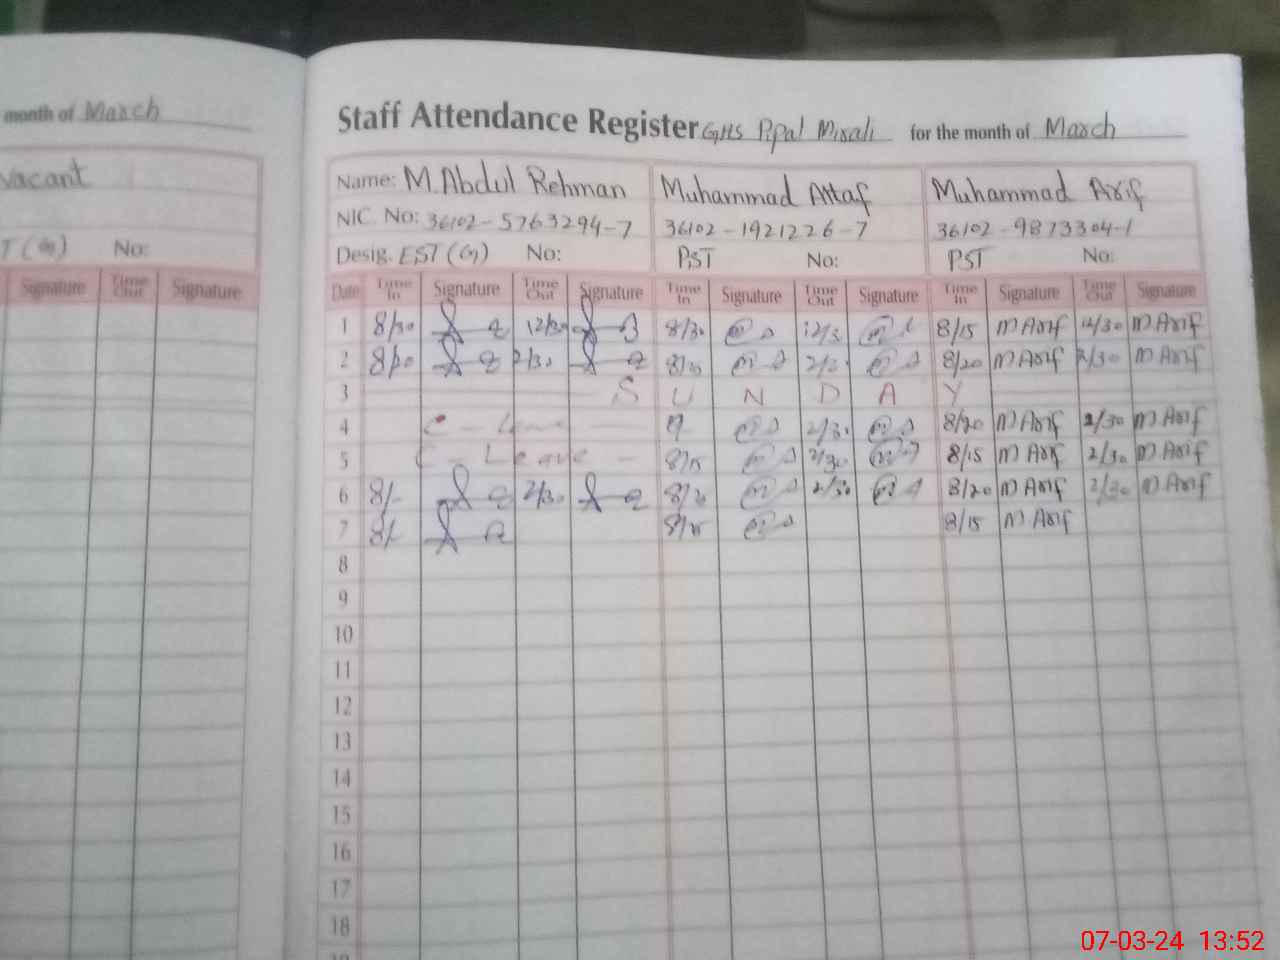 month of March
vacant
T (G) No:
Signature Time Out Signature
Staff Attendance Register GHS Pipal Mirali for the month of March
Name: M. Abdul Rehman Muhammad Altaf Muhammad Arif
NIC. No: 36102-5763294-7 36102-1921226-7 36102-9873304-1
Desig. EST (G) No: PST No: PST No:
Date Time In Signature Time Out Signature Time In Signature Time Out Signature Time In Signature Time Out Signature
1 8/30 12/30 8/30 12/3 8/15 M Arif 12/30 M Arif
2 8/20 2/30 8/20 M Arif 2/30 M Arif
3 S U N D A Y
4 C - Leave 2/30 8/20 M Arif 2/30 M Arif
5 C - Leave - 8/15 2/30 8/15 M Arif 2/30 M Arif
6 8/- 2/30 8/20 2/30 8/20 M Arif 2/30 M Arif
7 8/- 8/15 M Arif
8
9
10
11
12
13
14
15
16
17
18
19
07-03-24 13:52